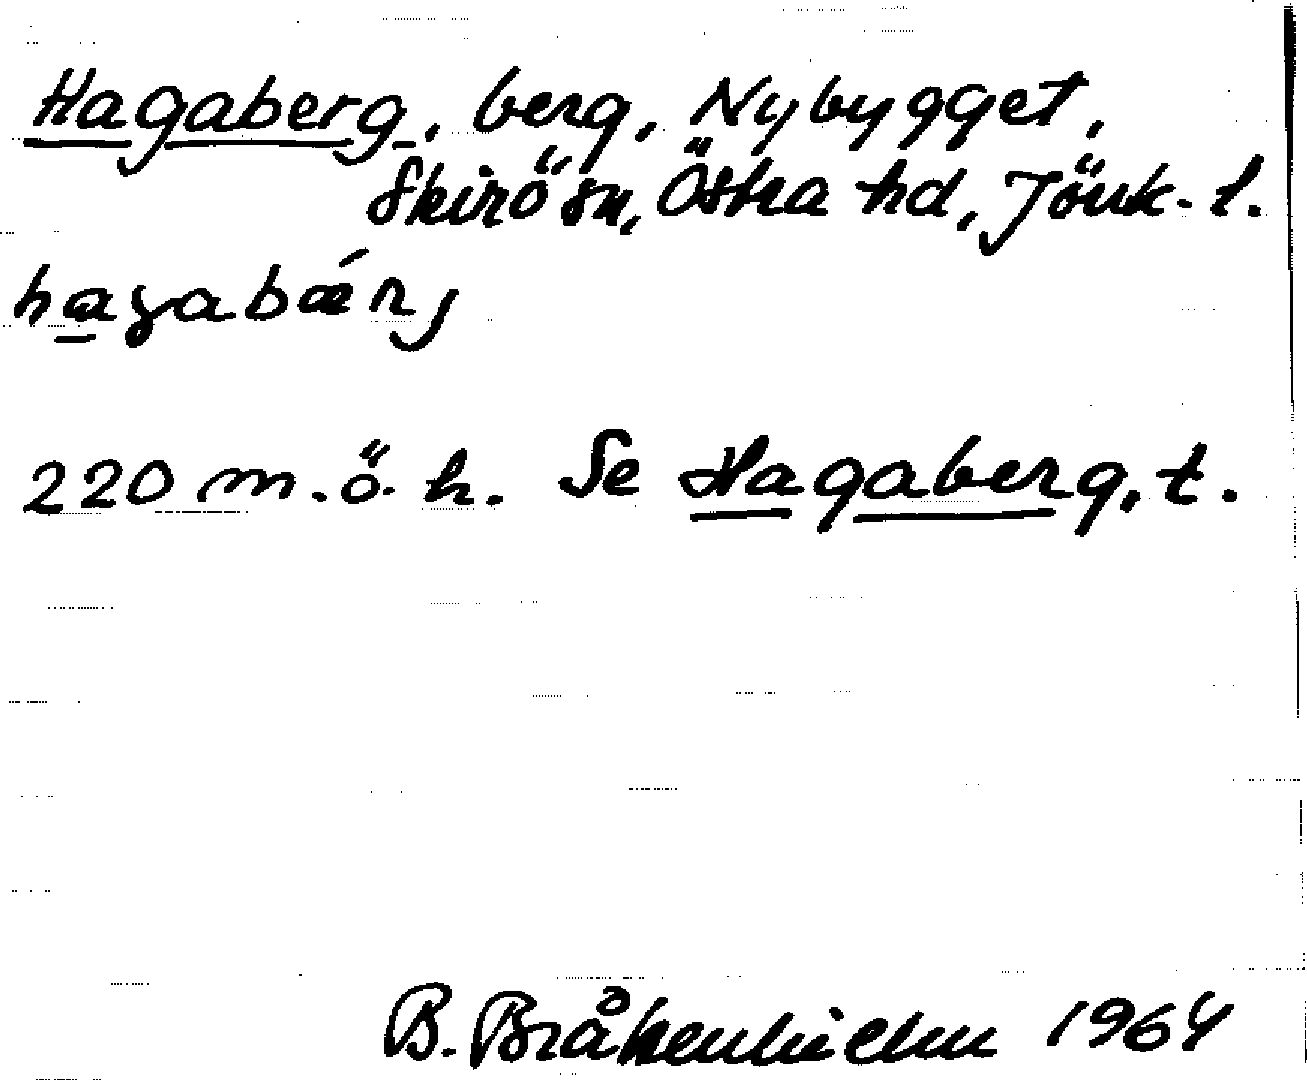 Hagaberg, berg, Nybygget,
Skirö sn, Östra hd, Jönk. l.
hagabǽrj
220 m. ö. h. Se Hagaberg, t.
B. Bråkenhielm 1964